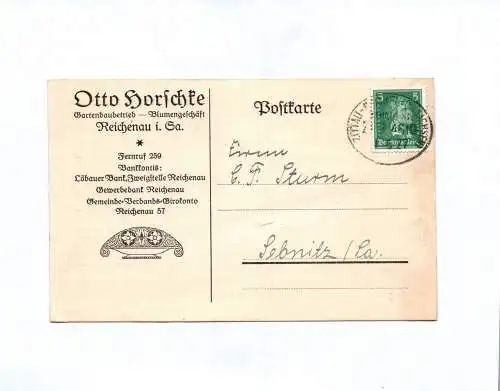 Otto Horschke
Gartenbaubetrieb — Blumengeschäft
Reichenau i. Sa.
*
Fernruf 259
Bankkontis:
Löbauer Bank, Zweigstelle Reichenau
Gewerbebank Reichenau
Gemeinde-Verbands-Girokonto
Reichenau 57
Postkarte
5 5
ZITTAU-
Firma
C. F. Sturm
Sebnitz/Sa.